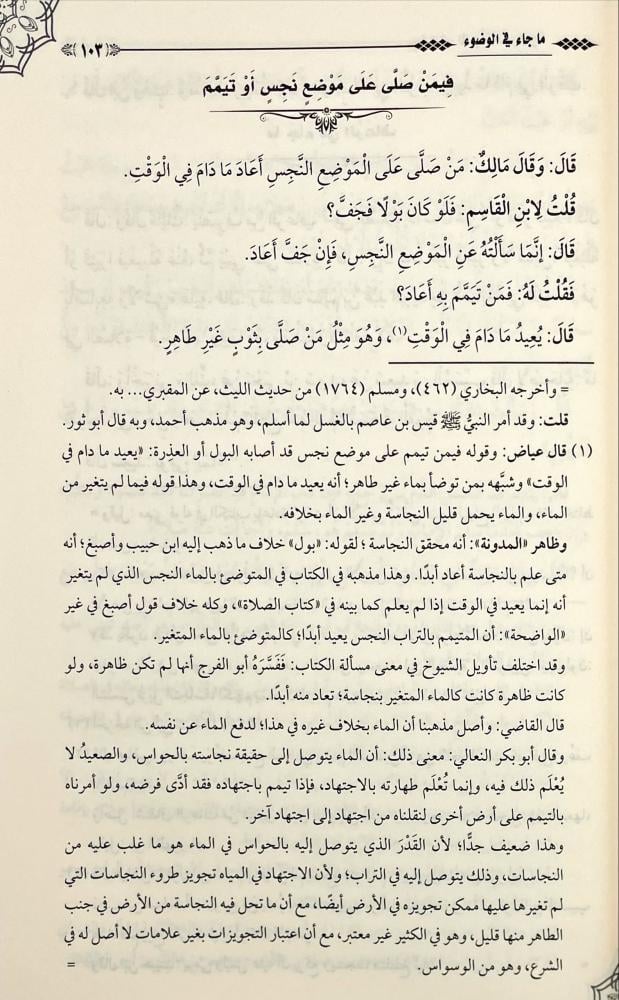 ما جاء في الوضوء
١٠٣
فِيمَنْ صَلَّى عَلَى مَوْضِعٍ نَجِسٍ أَوْ تَيَمَّمَ
قَالَ: وَقَالَ مَالِكٌ: مَنْ صَلَّى عَلَى الْمَوْضِعِ النَّجِسِ أَعَادَ مَا دَامَ فِي الْوَقْتِ.
قُلْتُ لِابْنِ الْقَاسِمِ: فَلَوْ كَانَ بَوْلًا فَجَفَّ؟
قَالَ: إِنَّمَا سَأَلْتُهُ عَنِ الْمَوْضِعِ النَّجِسِ، فَإِنْ جَفَّ أَعَادَ.
فَقُلْتُ لَهُ: فَمَنْ تَيَمَّمَ بِهِ أَعَادَ؟
قَالَ: يُعِيدُ مَا دَامَ فِي الْوَقْتِ(١)، وَهُوَ مِثْلُ مَنْ صَلَّى بِثَوْبٍ غَيْرِ طَاهِرٍ.
= وأخرجه البخاري (٤٦٢)، ومسلم (١٧٦٤) من حديث الليث، عن المقبري... به.
قلت: وقد أمر النبيُّ ﷺ قيس بن عاصم بالغسل لما أسلم، وهو مذهب أحمد، وبه قال أبو ثور.
(١) قال عياض: وقوله فيمن تيمم على موضع نجس قد أصابه البول أو العذِرة: «يعيد ما دام في
الوقت» وشبَّهه بمن توضأ بماء غير طاهر؛ أنه يعيد ما دام في الوقت، وهذا قوله فيما لم يتغير من
الماء، والماء يحمل قليل النجاسة وغير الماء بخلافه.
وظاهر «المدونة»: أنه محقق النجاسة؛ لقوله: «بول» خلاف ما ذهب إليه ابن حبيب وأصبغ؛ أنه
متى علم بالنجاسة أعاد أبدًا. وهذا مذهبه في الكتاب في المتوضئ بالماء النجس الذي لم يتغير
أنه إنما يعيد في الوقت إذا لم يعلم كما بينه في «كتاب الصلاة»، وكله خلاف قول أصبغ في غير
«الواضحة»: أن المتيمم بالتراب النجس يعيد أبدًا؛ كالمتوضئ بالماء المتغير.
وقد اختلف تأويل الشيوخ في معنى مسألة الكتاب: فَفَسَّرَهُ أبو الفرج أنها لم تكن ظاهرة، ولو
كانت ظاهرة كانت كالماء المتغير بنجاسة؛ تعاد منه أبدًا.
قال القاضي: وأصل مذهبنا أن الماء بخلاف غيره في هذا؛ لدفع الماء عن نفسه.
وقال أبو بكر النعالي: معنى ذلك: أن الماء يتوصل إلى حقيقة نجاسته بالحواس، والصعيدُ لا
يُعْلَم ذلك فيه، وإنما تُعْلَم طهارته بالاجتهاد، فإذا تيمم باجتهاده فقد أدَّى فرضه، ولو أمرناه
بالتيمم على أرض أخرى لنقلناه من اجتهاد إلى اجتهاد آخر.
وهذا ضعيف جدًّا؛ لأن القَدْرَ الذي يتوصل إليه بالحواس في الماء هو ما غلب عليه من
النجاسات، وذلك يتوصل إليه في التراب؛ ولأن الاجتهاد في المياه تجويز طروء النجاسات التي
لم تغيرها عليها ممكن تجويزه في الأرض أيضًا، مع أن ما تحل فيه النجاسة من الأرض في جنب
الطاهر منها قليل، وهو في الكثير غير معتبر، مع أن اعتبار التجويزات بغير علامات لا أصل له في
الشرع، وهو من الوسواس. =